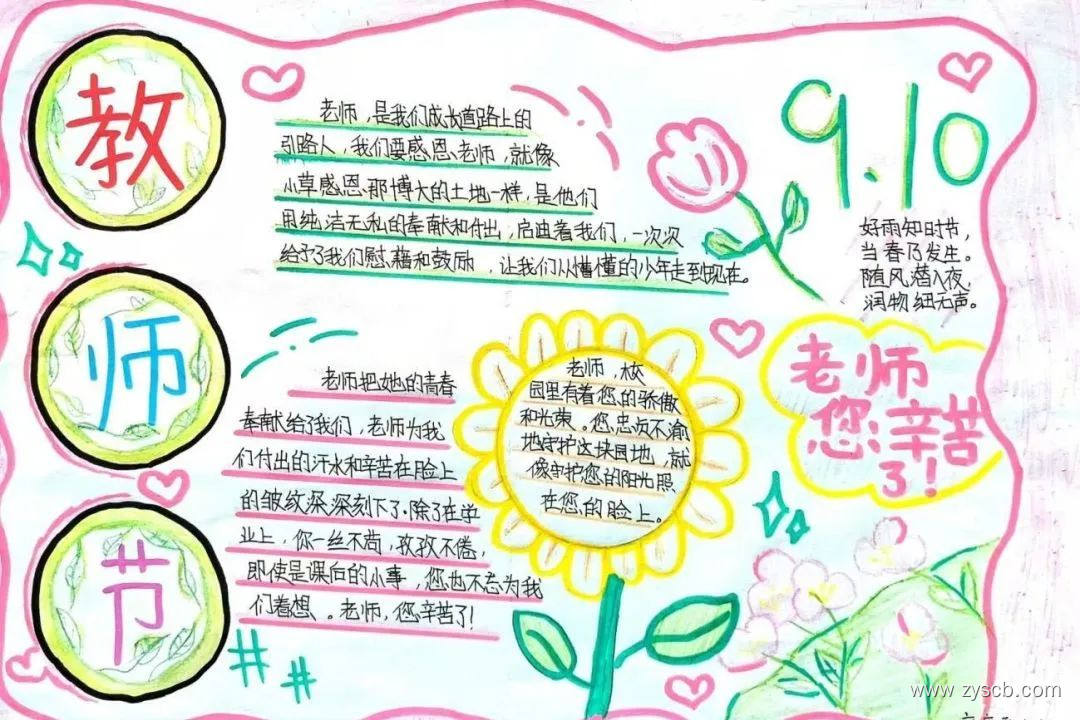 教
师
节
老师，是我们成长道路上的
引路人，我们要感恩老师，就像
小草感恩那博大的土地一样，是他们
用纯洁无私的奉献和付出，启迪着我们，一次次
给予了我们慰藉和鼓励，让我们从懵懂的少年走到现在。
9.10
好雨知时节，
当春乃发生。
随风潜入夜，
润物细无声。
老师
您辛苦
了！
老师把她的青春
奉献给了我们，老师为我
们付出的汗水和辛苦在脸上
的皱纹深深刻下了。除了在学
业上，你一丝不苟，孜孜不倦，
即使是课后的小事，您也不忘为我
们着想、。老师，您辛苦了！
老师，校
园里有着您的骄傲
和光荣。您忠贞不渝
地守护这块园地，就
像守护您的阳光照
在您的脸上。
www.zyscb.com